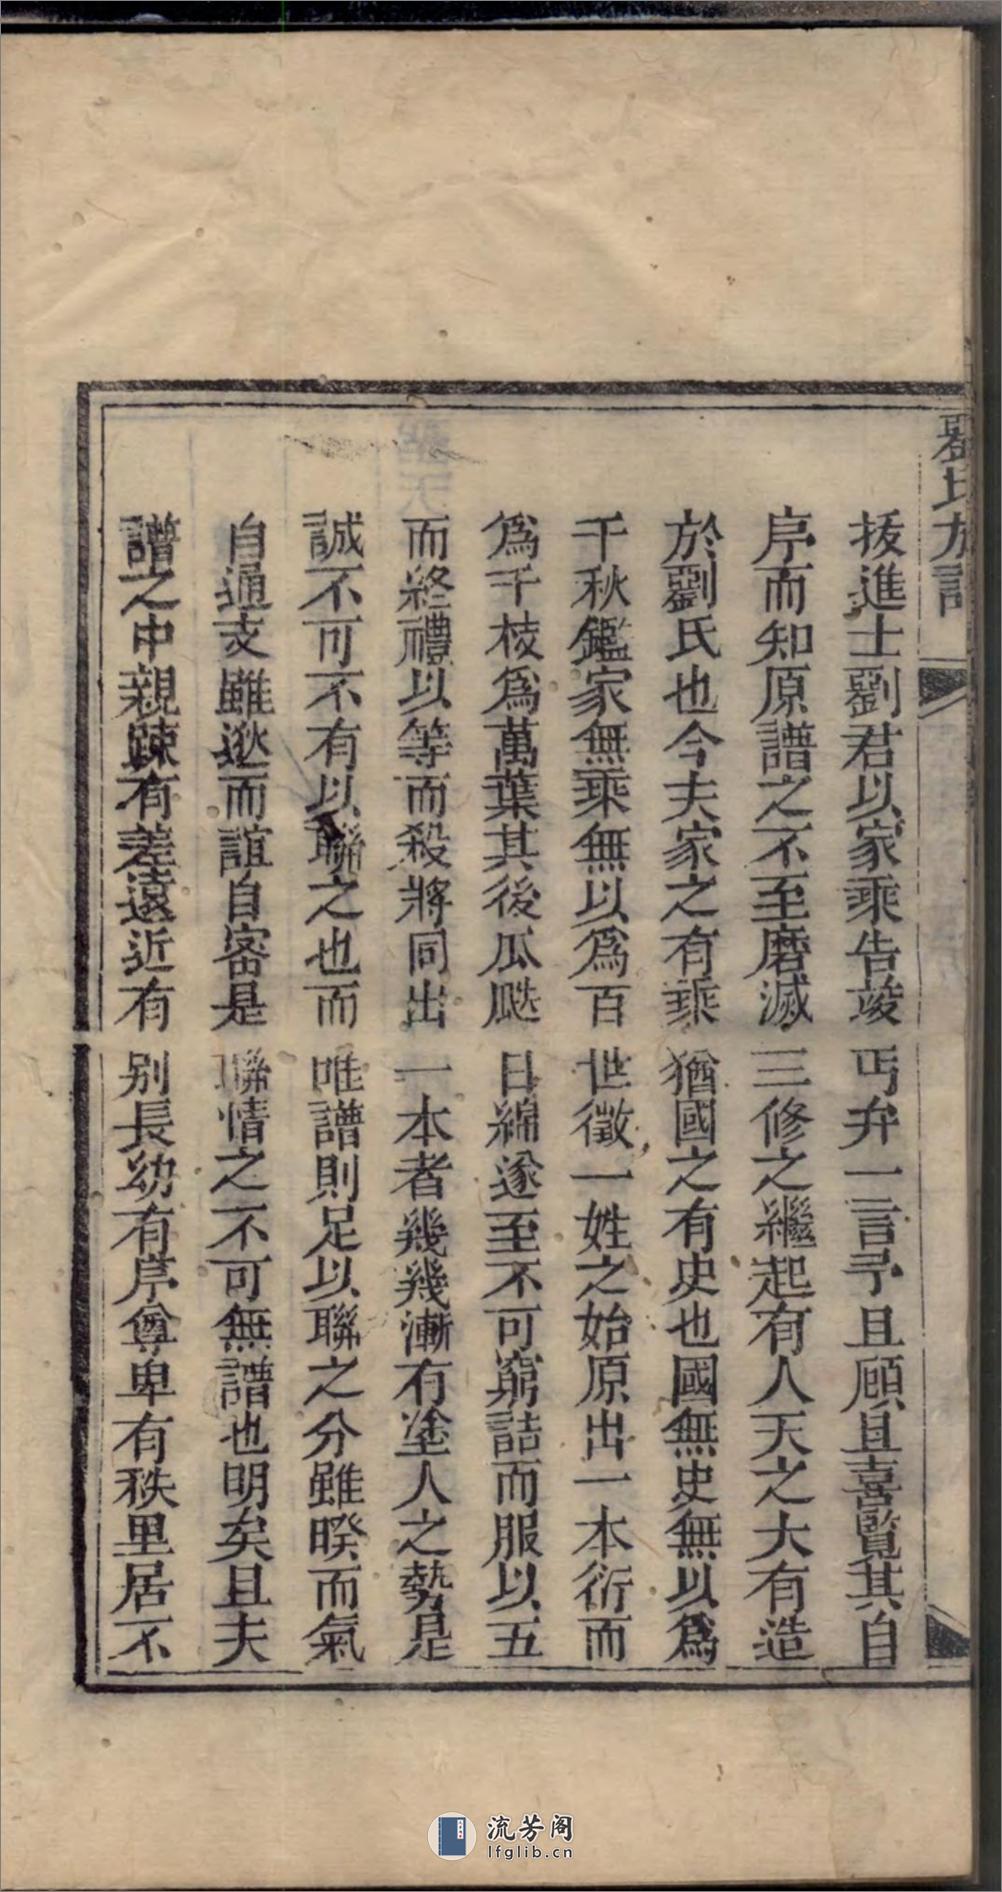 劉氏族譜
拔進士劉君以家乘告竣丐弁一言予且顧且喜覽其自
序而知原譜之不至磨滅三修之繼起有人天之大有造
於劉氏也今夫家之有乘猶國之有史也國無史無以爲
千秋鑑家無乘無以爲百世徵一姓之始原出一本衍而
爲千枝爲萬葉其後瓜瓞日綿遂至不可窮詰而服以五
而終禮以等而殺將同出一本者幾幾漸有塗人之勢是
誠不可不有以聯之也而唯譜則足以聯之分雖暌而氣
自通支雖逖而誼自密是聯情之不可無譜也明矣且夫
譜之中親疎有差遠近有别長幼有序尊卑有秩里居不
流芳阁
lfglib.cn